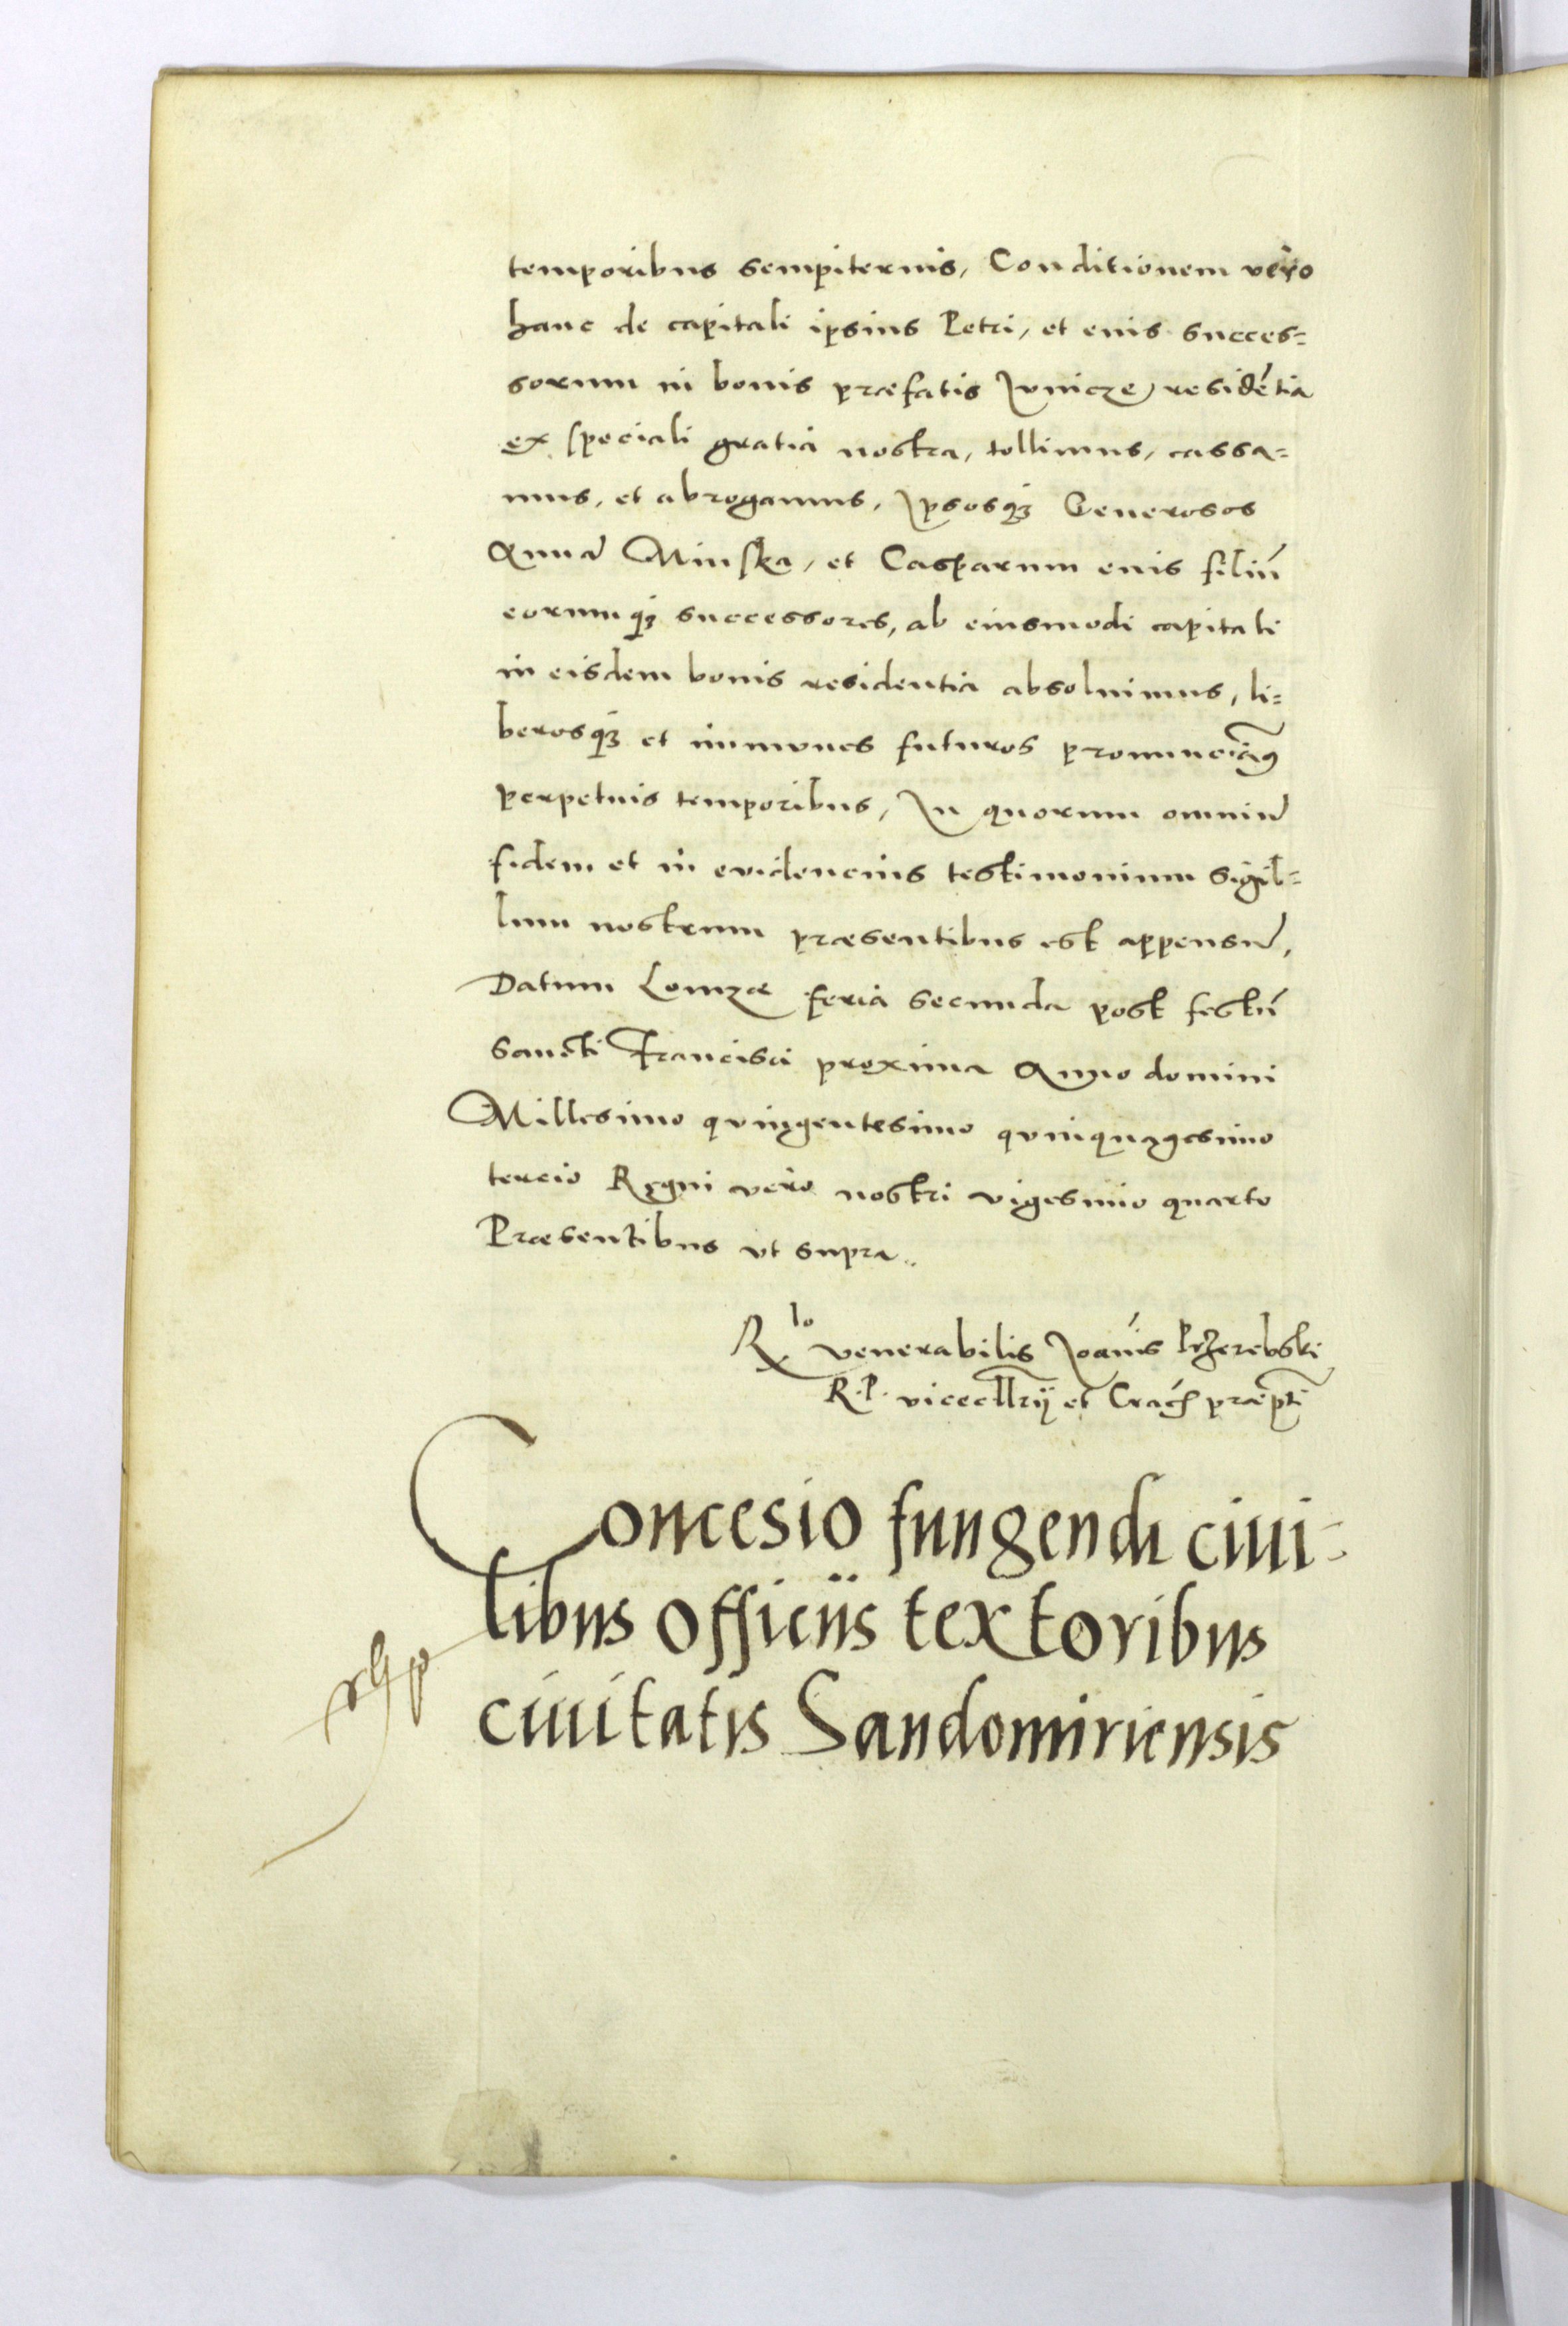 temporibus sempiternis, Conditionem vero
hanc de capitali ipsius Petri, et eius succes=
sorum in bonis præfatis Junicze residẽtia
ex speciali gratia nostra, tollimus, cassa=
mus, et abrogamus, Ipsosq₃ Generosos
Annã Minska, et Casparum eius filiũ
eorumq₃ successores, ab eiusmodi capitali
in eisdem bonis residentia absoluimus, li=
berosq₃ et immunes futuros pronunciamꝯ
perpetuis temporibus, In quorum omniũ
fidem et in evidencius testimonium sigil=
lum nostrum præsentibus est appensũ,
Datum Lomzæ feria secunda post festũ
sancti Francisci proxima Anno domini
Millesimo quingentesimo quinquagesimo
tercio Regni vero nostri vigesimo quarto
Præsentibus ut supra..
R.lo venerabilis Joañis Przerebski
R. P. vicecllrij et præpti
Concesio fungendi ciui-
libus officiis textoribus
ciuitatis Sandomiriensis